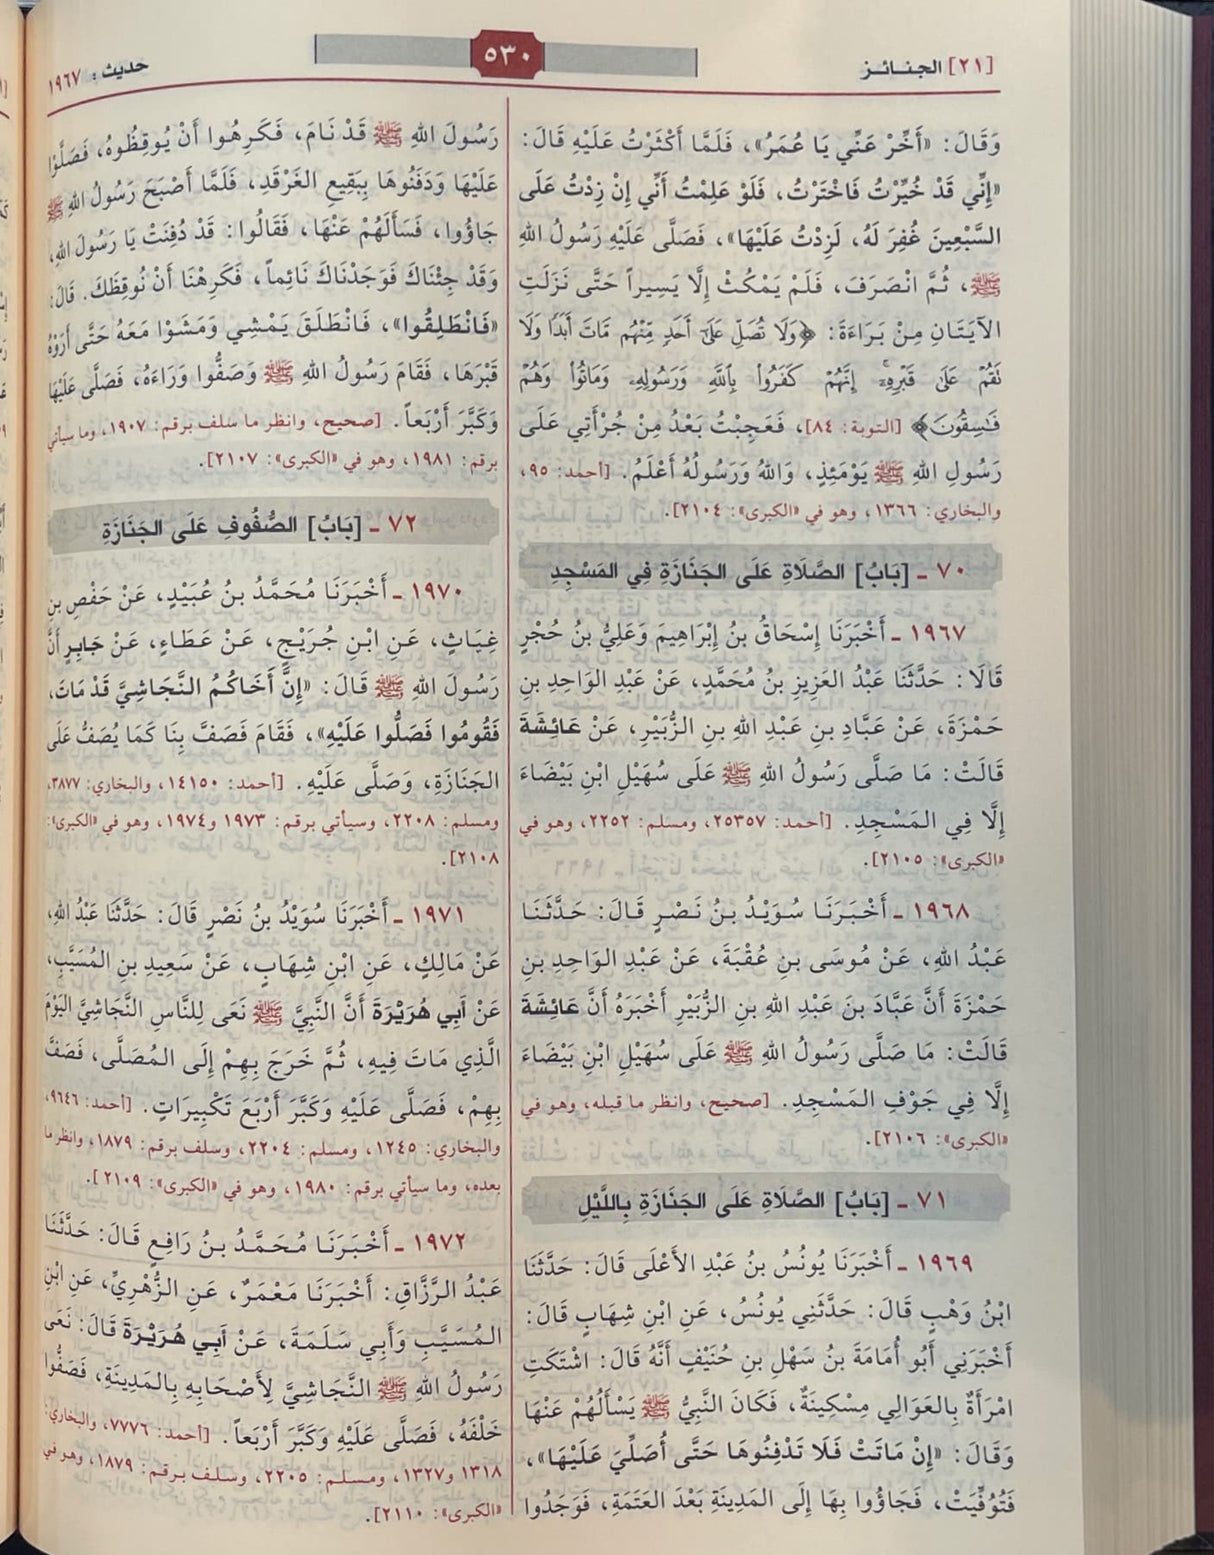 [٢١] الجنائز
٥٣٠
حديث: ١٩٦٧
وَقَالَ: «أَخِّرْ عَنِّي يَا عُمَرُ»، فَلَمَّا أَكْثَرْتُ عَلَيْهِ قَالَ:
«إِنِّي قَدْ خُيِّرْتُ فَاخْتَرْتُ، فَلَوْ عَلِمْتُ أَنِّي إِنْ زِدْتُ عَلَى
السَّبْعِينَ غُفِرَ لَهُ، لَزِدْتُ عَلَيْهَا»، فَصَلَّى عَلَيْهِ رَسُولُ اللهِ
ﷺ، ثُمَّ انْصَرَفَ، فَلَمْ يَمْكُثْ إِلَّا يَسِيراً حَتَّى نَزَلَتِ
الآيَتَانِ مِنْ بَرَاءَةَ: ﴿وَلَا تُصَلِّ عَلَىٰٓ أَحَدٍ مِّنْهُم مَّاتَ أَبَدًا وَلَا
نَقُمْ عَلَىٰ قَبْرِهِۦٓ إِنَّهُمْ كَفَرُوا۟ بِٱللَّهِ وَرَسُولِهِۦ وَمَاتُوا۟ وَهُمْ
فَـٰسِقُونَ﴾ [التوبة: ٨٤]، فَعَجِبْتُ بَعْدُ مِنْ جُرْأَتِي عَلَى
رَسُولِ اللهِ ﷺ يَوْمَئِذٍ، وَاللهُ وَرَسُولُهُ أَعْلَمُ. [أحمد: ٩٥،
والبخاري: ١٣٦٦، وهو في «الكبرى»: ٢١٠٤].
٧٠ ـ [بَابُ] الصَّلَاةِ عَلَى الجَنَازَةِ فِي المَسْجِدِ
١٩٦٧ ـ أَخْبَرَنَا إِسْحَاقُ بنُ إِبْرَاهِيمَ وَعَلِيُّ بنُ حُجْرٍ
قَالَا: حَدَّثَنَا عَبْدُ العَزِيزِ بنُ مُحَمَّدٍ، عَنْ عَبْدِ الوَاحِدِ بنِ
حَمْزَةَ، عَنْ عَبَّادِ بنِ عَبْدِ اللهِ بنِ الزُّبَيْرِ، عَنْ عَائِشَةَ
قَالَتْ: مَا صَلَّى رَسُولُ اللهِ ﷺ عَلَى سُهَيْلِ ابْنِ بَيْضَاءَ
إِلَّا فِي المَسْجِدِ. [أحمد: ٢٥٣٥٧، ومسلم: ٢٢٥٢، وهو في
«الكبرى»: ٢١٠٥].
١٩٦٨ ـ أَخْبَرَنَا سُوَيْدُ بنُ نَصْرٍ قَالَ: حَدَّثَنَا
عَبْدُ اللهِ، عَنْ مُوسَى بنِ عُقْبَةَ، عَنْ عَبْدِ الوَاحِدِ بنِ
حَمْزَةَ أَنَّ عَبَّادَ بنَ عَبْدِ اللهِ بنِ الزُّبَيْرِ أَخْبَرَهُ أَنَّ عَائِشَةَ
قَالَتْ: مَا صَلَّى رَسُولُ اللهِ ﷺ عَلَى سُهَيْلِ ابْنِ بَيْضَاءَ
إِلَّا فِي جَوْفِ المَسْجِدِ. [صحيح، وانظر ما قبله، وهو في
«الكبرى»: ٢١٠٦].
٧١ ـ [بَابُ] الصَّلَاةِ عَلَى الجَنَازَةِ بِاللَّيْلِ
١٩٦٩ ـ أَخْبَرَنَا يُونُسُ بنُ عَبْدِ الأَعْلَى قَالَ: حَدَّثَنَا
ابْنُ وَهْبٍ قَالَ: حَدَّثَنِي يُونُسُ، عَنِ ابْنِ شِهَابٍ قَالَ:
أَخْبَرَنِي أَبُو أُمَامَةَ بنُ سَهْلِ بنِ حُنَيْفٍ أَنَّهُ قَالَ: اشْتَكَتِ
امْرَأَةٌ بِالعَوَالِي مِسْكِينَةٌ، فَكَانَ النَّبِيُّ ﷺ يَسْأَلُهُمْ عَنْهَا
وَقَالَ: «إِنْ مَاتَتْ فَلَا تَدْفِنُوهَا حَتَّى أُصَلِّيَ عَلَيْهَا»،
فَتُوُفِّيَتْ، فَجَاؤُوا بِهَا إِلَى المَدِينَةِ بَعْدَ العَتَمَةِ، فَوَجَدُوا
رَسُولَ اللهِ ﷺ قَدْ نَامَ، فَكَرِهُوا أَنْ يُوقِظُوهُ، فَصَلَّوْا
عَلَيْهَا وَدَفَنُوهَا بِبَقِيعِ الغَرْقَدِ، فَلَمَّا أَصْبَحَ رَسُولُ اللهِ ﷺ
جَاؤُوا، فَسَأَلَهُمْ عَنْهَا، فَقَالُوا: قَدْ دُفِنَتْ يَا رَسُولَ اللهِ،
وَقَدْ جِئْنَاكَ فَوَجَدْنَاكَ نَائِماً، فَكَرِهْنَا أَنْ نُوقِظَكَ. قَالَ:
«فَانْطَلِقُوا»، فَانْطَلَقَ يَمْشِي وَمَشَوْا مَعَهُ حَتَّى أَرَوْهُ
قَبْرَهَا، فَقَامَ رَسُولُ اللهِ ﷺ وَصَفُّوا وَرَاءَهُ، فَصَلَّى عَلَيْهَا
وَكَبَّرَ أَرْبَعاً. [صحيح، وانظر ما سلف برقم: ١٩٠٧، وما سيأتي
برقم: ١٩٨١، وهو في «الكبرى»: ٢١٠٧].
٧٢ ـ [بَابُ] الصُّفُوفِ عَلَى الجَنَازَةِ
١٩٧٠ ـ أَخْبَرَنَا مُحَمَّدُ بنُ عُبَيْدٍ، عَنْ حَفْصِ بنِ
غِيَاثٍ، عَنِ ابْنِ جُرَيْجٍ، عَنْ عَطَاءٍ، عَنْ جَابِرٍ أَنَّ
رَسُولَ اللهِ ﷺ قَالَ: «إِنَّ أَخَاكُمُ النَّجَاشِيَّ قَدْ مَاتَ،
فَقُومُوا فَصَلُّوا عَلَيْهِ»، فَقَامَ فَصَفَّ بِنَا كَمَا يُصَفُّ عَلَى
الجَنَازَةِ، وَصَلَّى عَلَيْهِ. [أحمد: ١٤١٥٠، والبخاري: ٣٨٧٧،
ومسلم: ٢٢٠٨، وسيأتي برقم: ١٩٧٣ و١٩٧٤، وهو في «الكبرى»:
٢١٠٨].
١٩٧١ ـ أَخْبَرَنَا سُوَيْدُ بنُ نَصْرٍ قَالَ: حَدَّثَنَا عَبْدُ اللهِ،
عَنْ مَالِكٍ، عَنِ ابْنِ شِهَابٍ، عَنْ سَعِيدِ بنِ المُسَيَّبِ،
عَنْ أَبِي هُرَيْرَةَ أَنَّ النَّبِيَّ ﷺ نَعَى لِلنَّاسِ النَّجَاشِيَّ اليَوْمَ
الَّذِي مَاتَ فِيهِ، ثُمَّ خَرَجَ بِهِمْ إِلَى المُصَلَّى، فَصَفَّ
بِهِمْ، فَصَلَّى عَلَيْهِ وَكَبَّرَ أَرْبَعَ تَكْبِيرَاتٍ. [أحمد: ٩٦٤٦،
والبخاري: ١٢٤٥، ومسلم: ٢٢٠٤، وسلف برقم: ١٨٧٩، وانظر ما
بعده، وما سيأتي برقم: ١٩٨٠، وهو في «الكبرى»: ٢١٠٩].
١٩٧٢ ـ أَخْبَرَنَا مُحَمَّدُ بنُ رَافِعٍ قَالَ: حَدَّثَنَا
عَبْدُ الرَّزَّاقِ: أَخْبَرَنَا مَعْمَرٌ، عَنِ الزُّهْرِيِّ، عَنِ ابْنِ
المُسَيَّبِ وَأَبِي سَلَمَةَ، عَنْ أَبِي هُرَيْرَةَ قَالَ: نَعَى
رَسُولُ اللهِ ﷺ النَّجَاشِيَّ لِأَصْحَابِهِ بِالمَدِينَةِ، فَصَفُّوا
خَلْفَهُ، فَصَلَّى عَلَيْهِ وَكَبَّرَ أَرْبَعاً. [أحمد: ٧٧٧٦، والبخاري:
١٣١٨ و١٣٢٧، ومسلم: ٢٢٠٥، وسلف برقم: ١٨٧٩، وهو في
«الكبرى»: ٢١١٠].